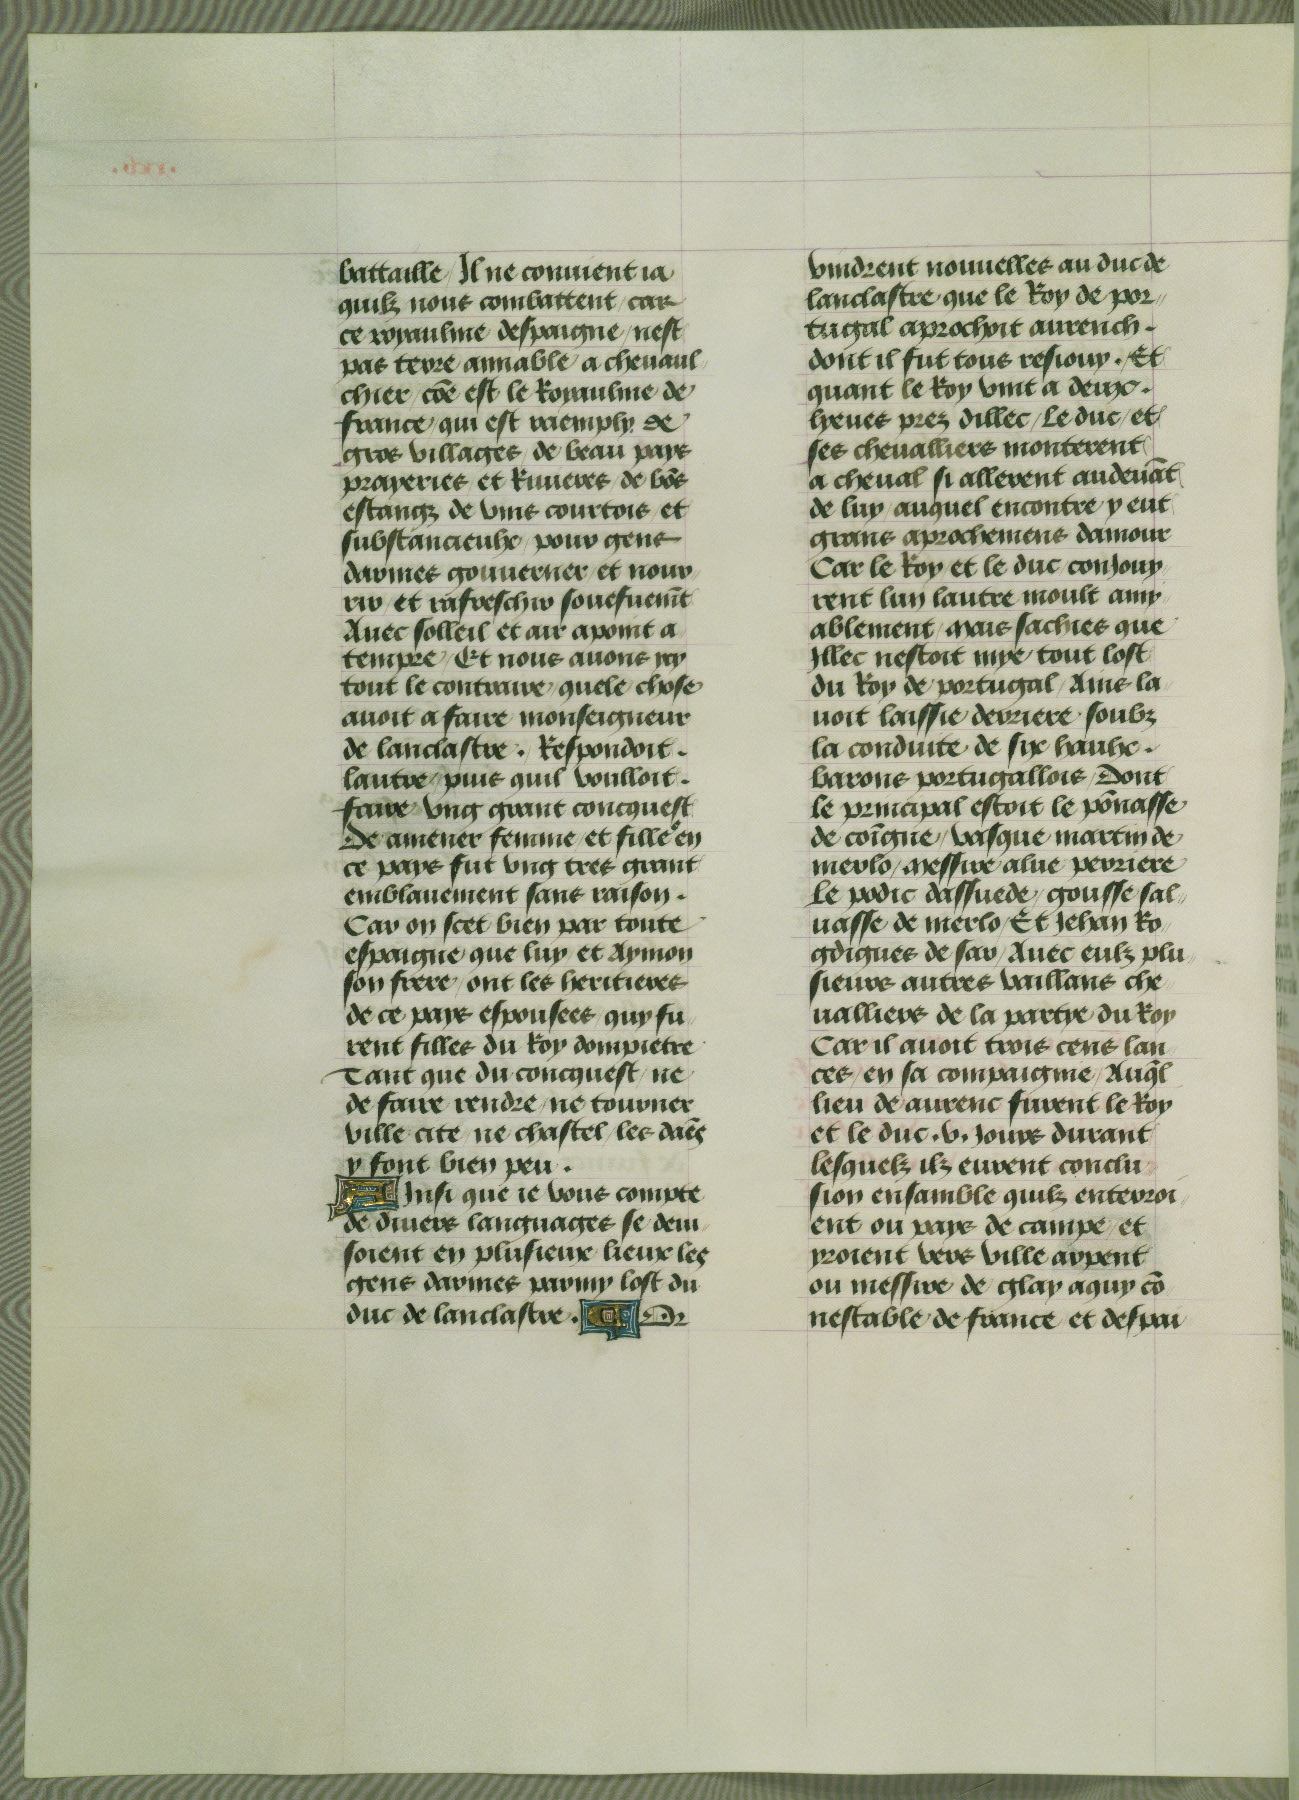 battaille / Il ne conuient ia
quilz nous combattent / car
ce royaulme despaigne / nest
pas terre amiable / a cheuaul
chier / cōe est le Royaulme de
france / qui est raemply de
gros villages / de beau pays
prayeries et Riuieres de bōs
estangz de vins courtois et
substancieulx / pour gens
darmes gouuerner et nour
rir / et rafreschir souefuemt̄
Auec solleil et air apoint a
tempre / Et nous auons icy
tout le contraire / quele chose
auoit a faire monseigneur
de lanclastre . Respondoit .
lautre / puis quil voulloit .
faire vng grant concquest
De amener femme et fille en
ce pays fut vng tres grant
emblauement sans raison .
Car on scet bien par toute
espaigne / que luy et Aymon
son frere / ont les heritieres
de ce pays espousees / quy fu
rent filles du Roy dompietre
Tant que du concquest / ne
de faire rendre / ne tourner
ville cite ne chastel / les daēs
y font bien peu .
Ainsi que ie vous compte
de diuers languages se deui
soient en plusieux lieux les
gens darmes parmy lost du
duc de lanclastre . Or
vindrent nouuelles au duc de
lanclastre que le Roy de por
tugal aprochoit aurench .
dont il fut tous resiouy . Et
quant le Roy vint a deux .
lyeues prez dillec / Le duc / et
ses cheualliers monterent
a cheual si allerent audeuāt
de luy / auquel encontre y eut
grans aprochemens damour
Car le Roy et le duc conJouy
rent lun lautre moult amy
ablement / Mais sachies que
Illec nestoit mye tout lost
du Roy de portugal / Ains la
uoit laissie derriere soubz
la conduite de six haulx .
barons portugallois / Dont
le principal estoit le pōnasse
de coīgne / vasque martin de
merlo / Messire alue perriere
Le podic dassuede / gousse sal
uasse de merlo / Et Jehan Ro
gdigues de sar / Auec eulz plu
sieurs autres vaillans che
ualliers de la partye du Roy
Car il auoit trois cens lan
ces / en sa compaignie / Auql̄
lieu de aurenc furent le Roy
et le duc . v . Jours durant
lesquelz ilz eurent conclu
sion ensamble quilz enterroi
ent ou pays de campe / et
yroient vers ville arpent
ou messire de clay aquy cō
nestable de france et despai